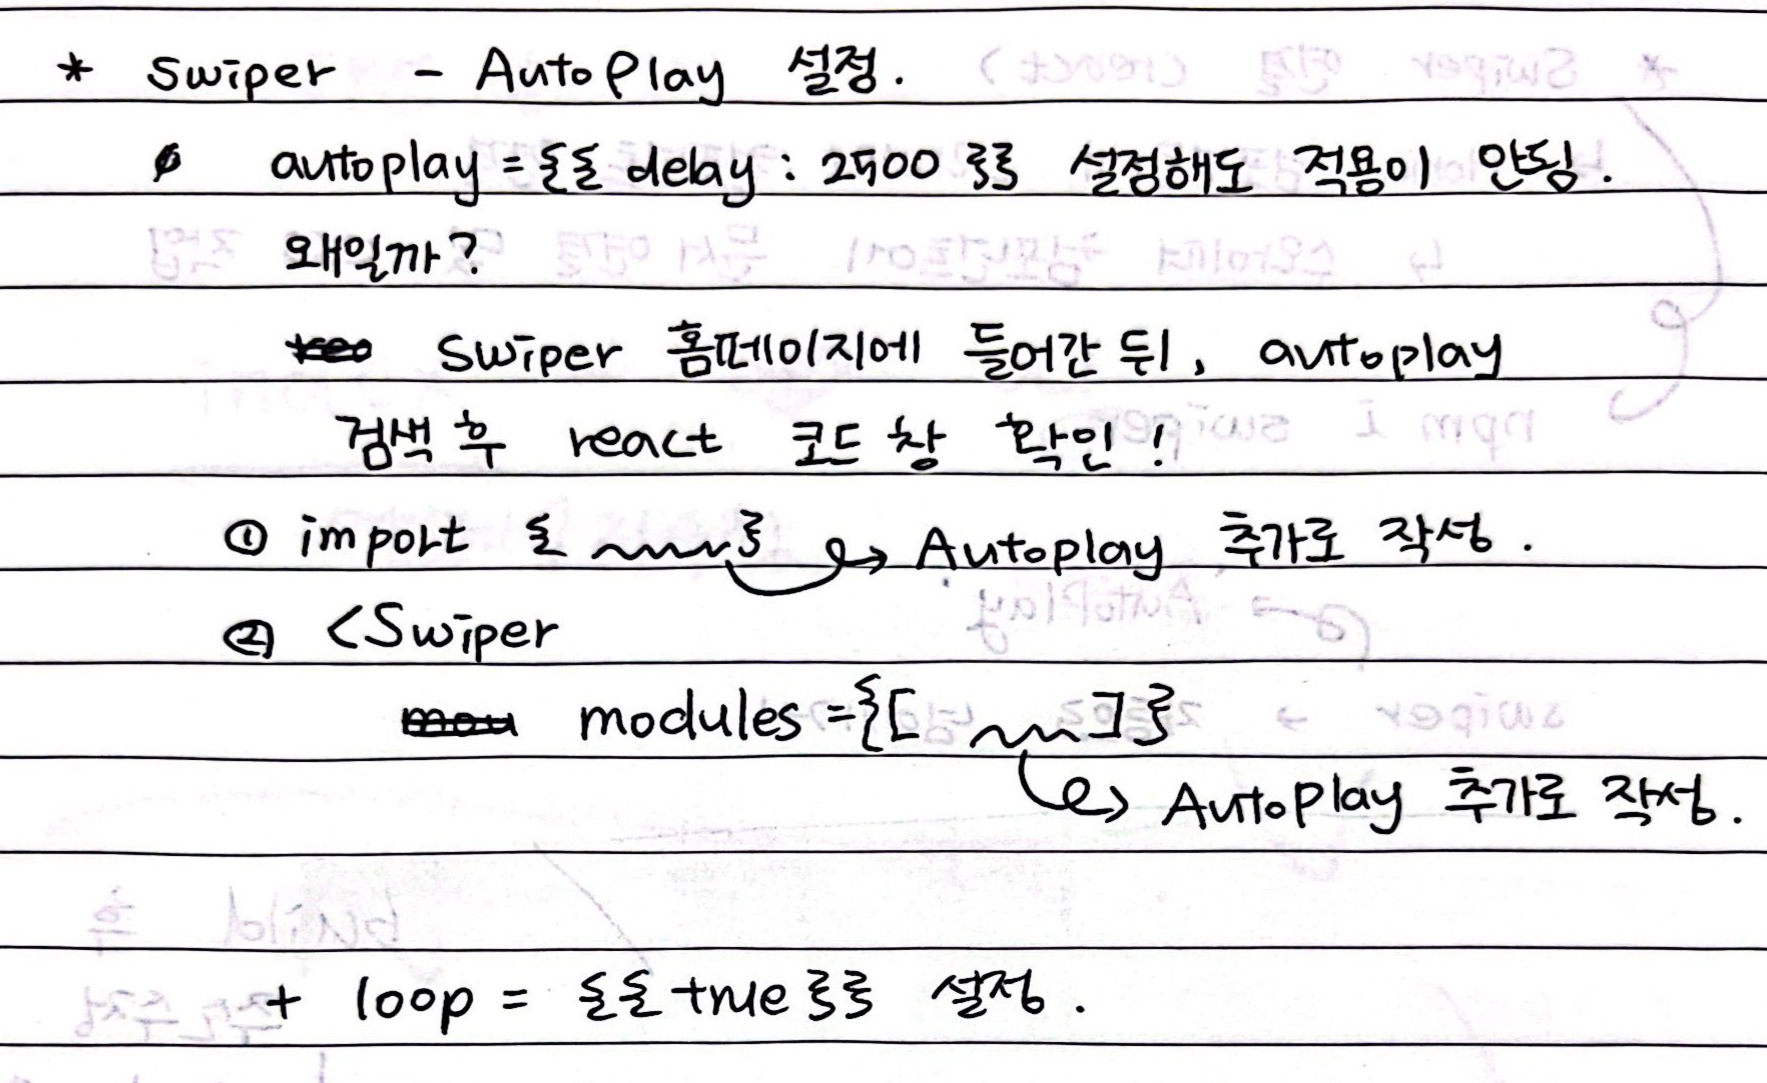 * Swiper - AutoPlay 설정.
autoplay = {{ delay : 2500 }} 설정해도 적용이 안됨.
왜일까?
Swiper 홈페이지에 들어간 뒤, autoplay
검색 후 react 코드 창 확인!
① import { } → Autoplay 추가로 작성.
② <Swiper
modules ={[ ]}
→ AutoPlay 추가로 작성.
+ loop = {{ true }} 설정.